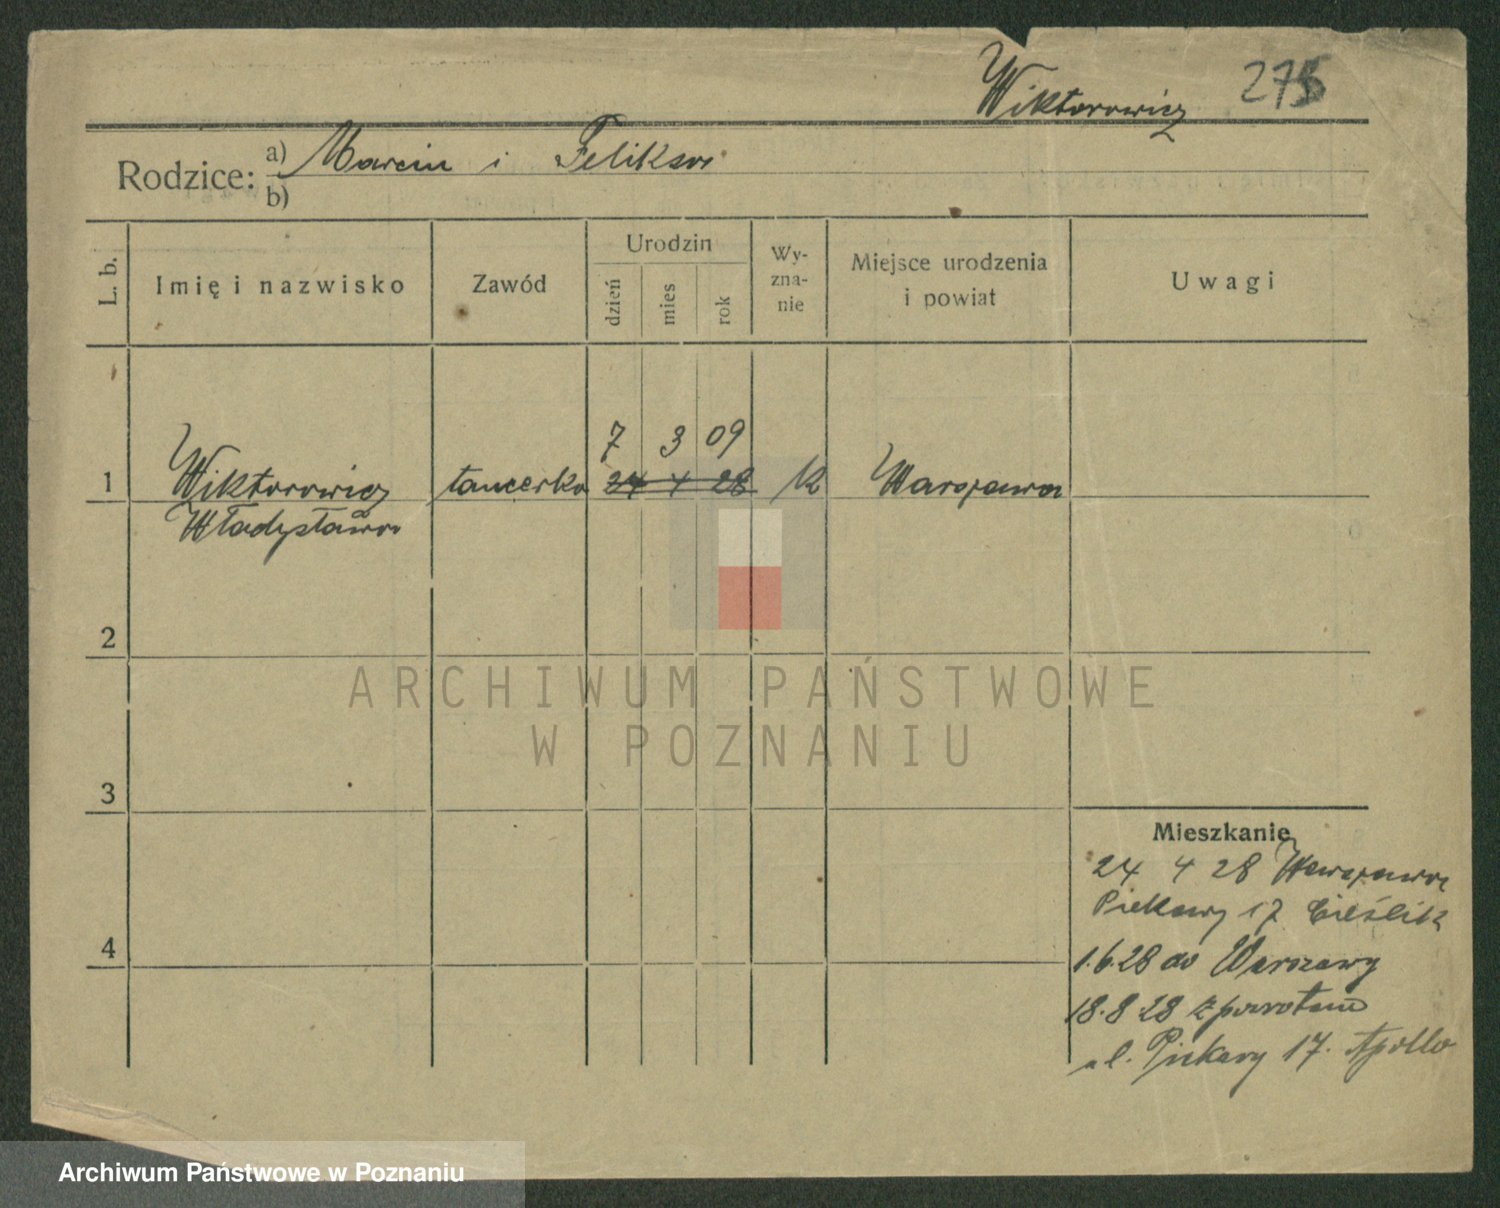 Wiktorowicz 275
Rodzice: a) Marcin i Feliksa
b)
L. b. Imię i nazwisko Zawód Urodzin dzień mies rok Wy-zna-nie Miejsce urodzenia i powiat Uwagi
7 3 09
1 Wiktorowicz tancerka 24 4 28 K Warszawa
Władysława
2
3
4
Mieszkanie
24 4 28 Warszawa
Piekary 17 Cieślik
1.6.28 do Warszawy
18.8.28 z powrotem
ul. Piekary 17. Apollo
ARCHIWUM PAŃSTWOWE
W POZNANIU
Archiwum Państwowe w Poznaniu